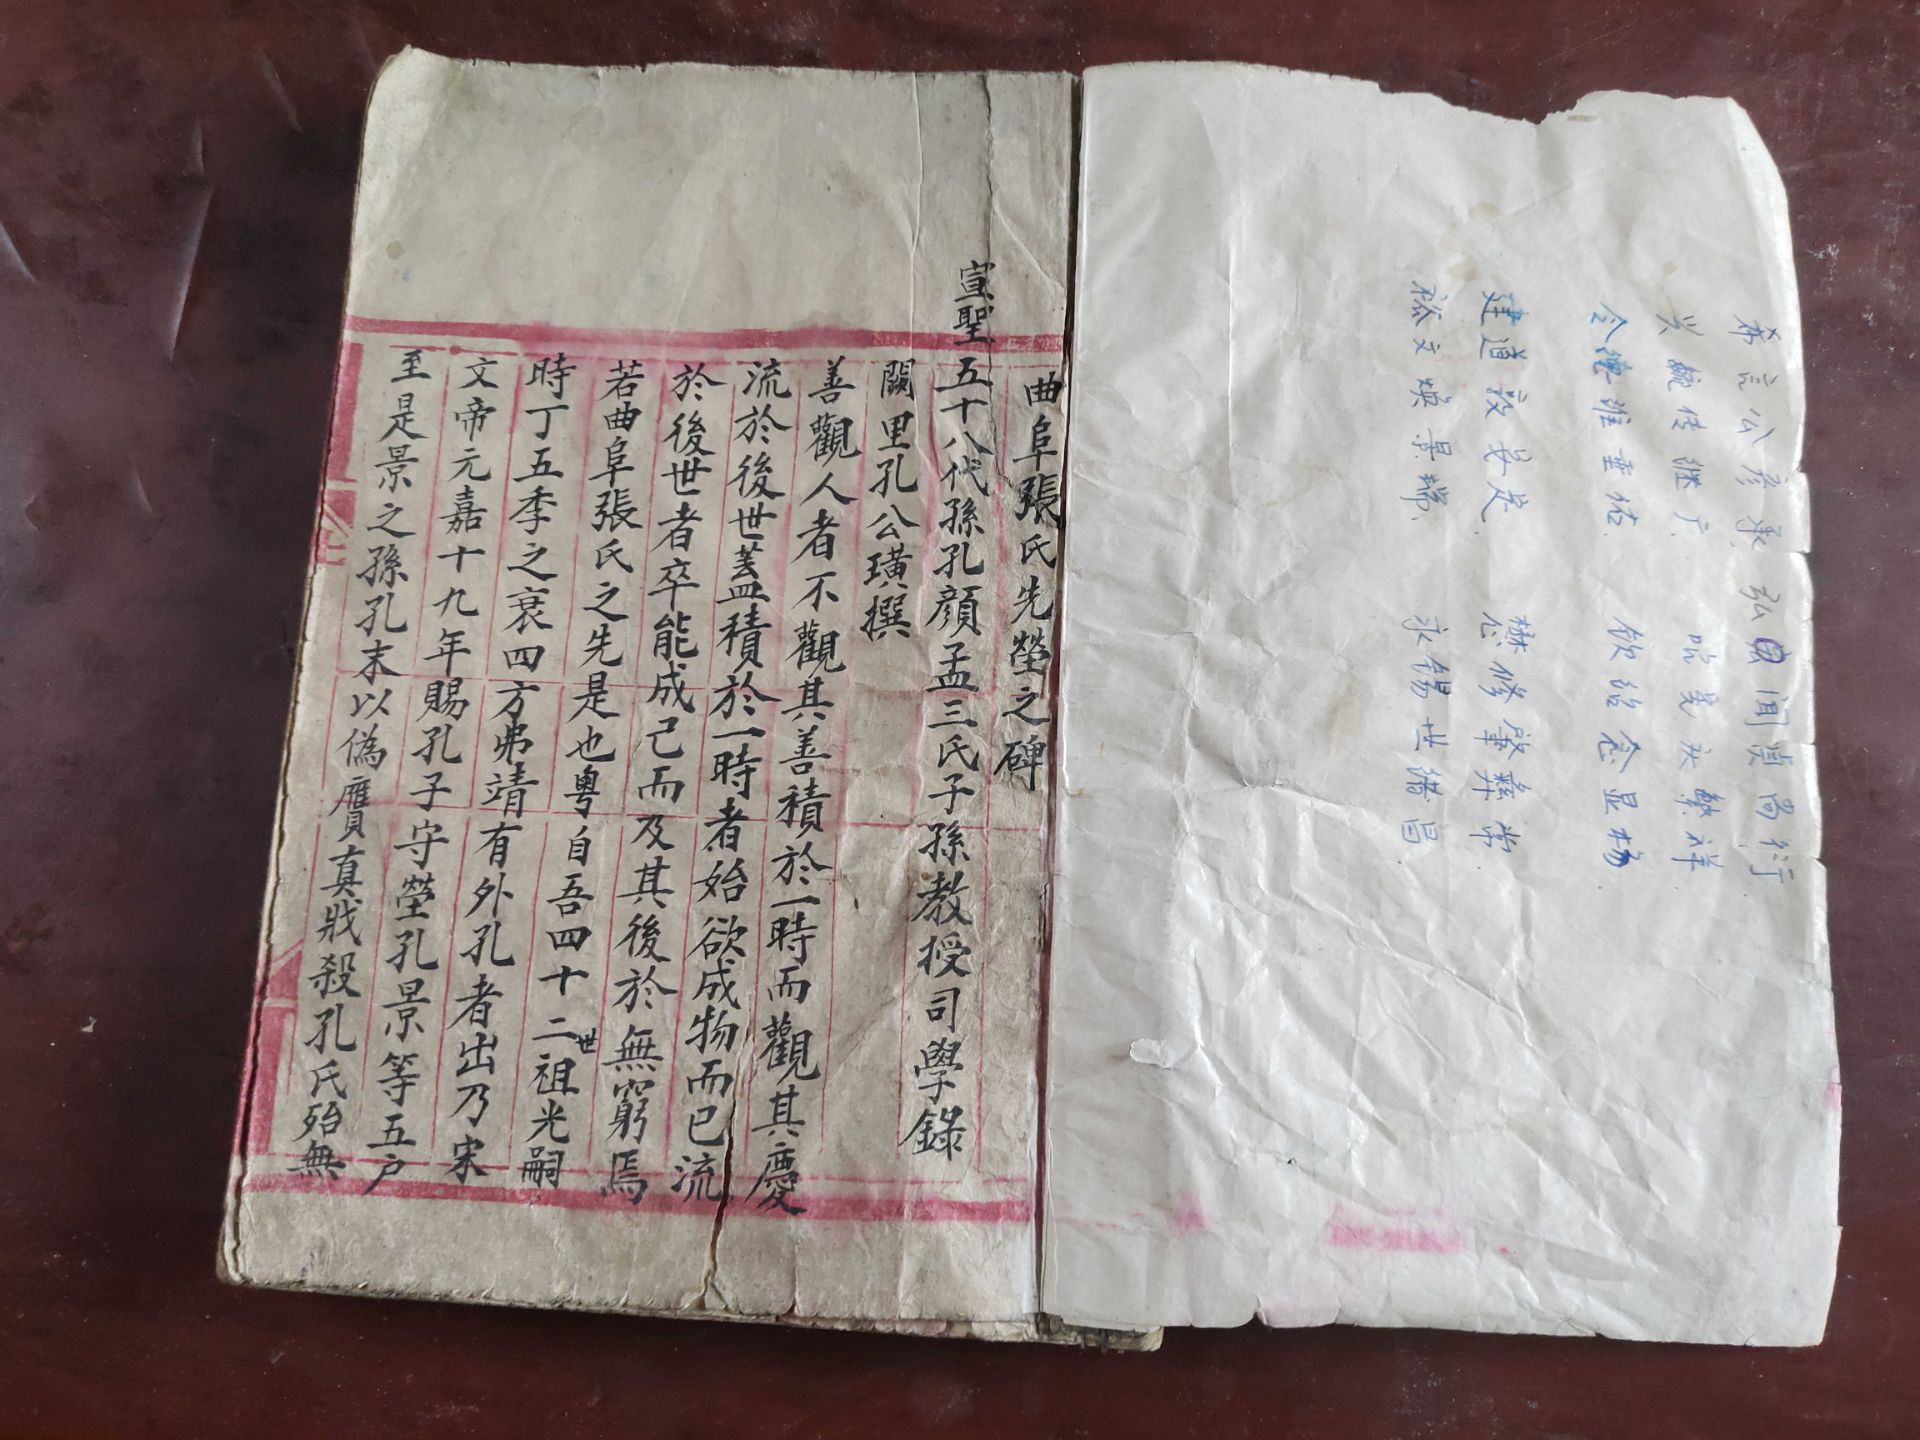 希言公彦承 弘闻贞尚衍
兴毓传继广 昭宪庆繁祥
令德维垂佑 钦绍念显杨
建道敦安定 懋修肇彝常
裕文焕景瑞 永锡世绪昌
曲阜張氏先塋之碑
宣聖五十八代孫孔顔孟三氏子孫教授司學錄
闕里孔公璜撰
善觀人者不觀其善積於一時而觀其慶
流於後世蓋積於一時者始欲成物而已流
於後世者卒能成己而及其後於無窮焉
若曲阜張氏之先是也粤自吾四十二世祖光嗣
時丁五季之衰四方弗靖有外孔者出乃宋
文帝元嘉十九年賜孔子守塋孔景等五户
至是景之孫孔末以偽贋真戕殺孔氏殆無